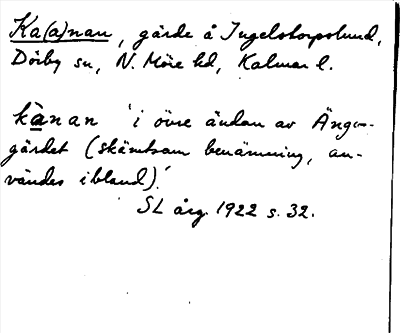 Ka(a)nan, gärde å Ingelstorpslund,
Dörby sn, N. Möre hd, Kalmar l.
kànan 'i övre ändan av Ängs-
gärdet (skämtsam benämning, an-
vändes ibland).'
SL årg. 1922 s. 32.